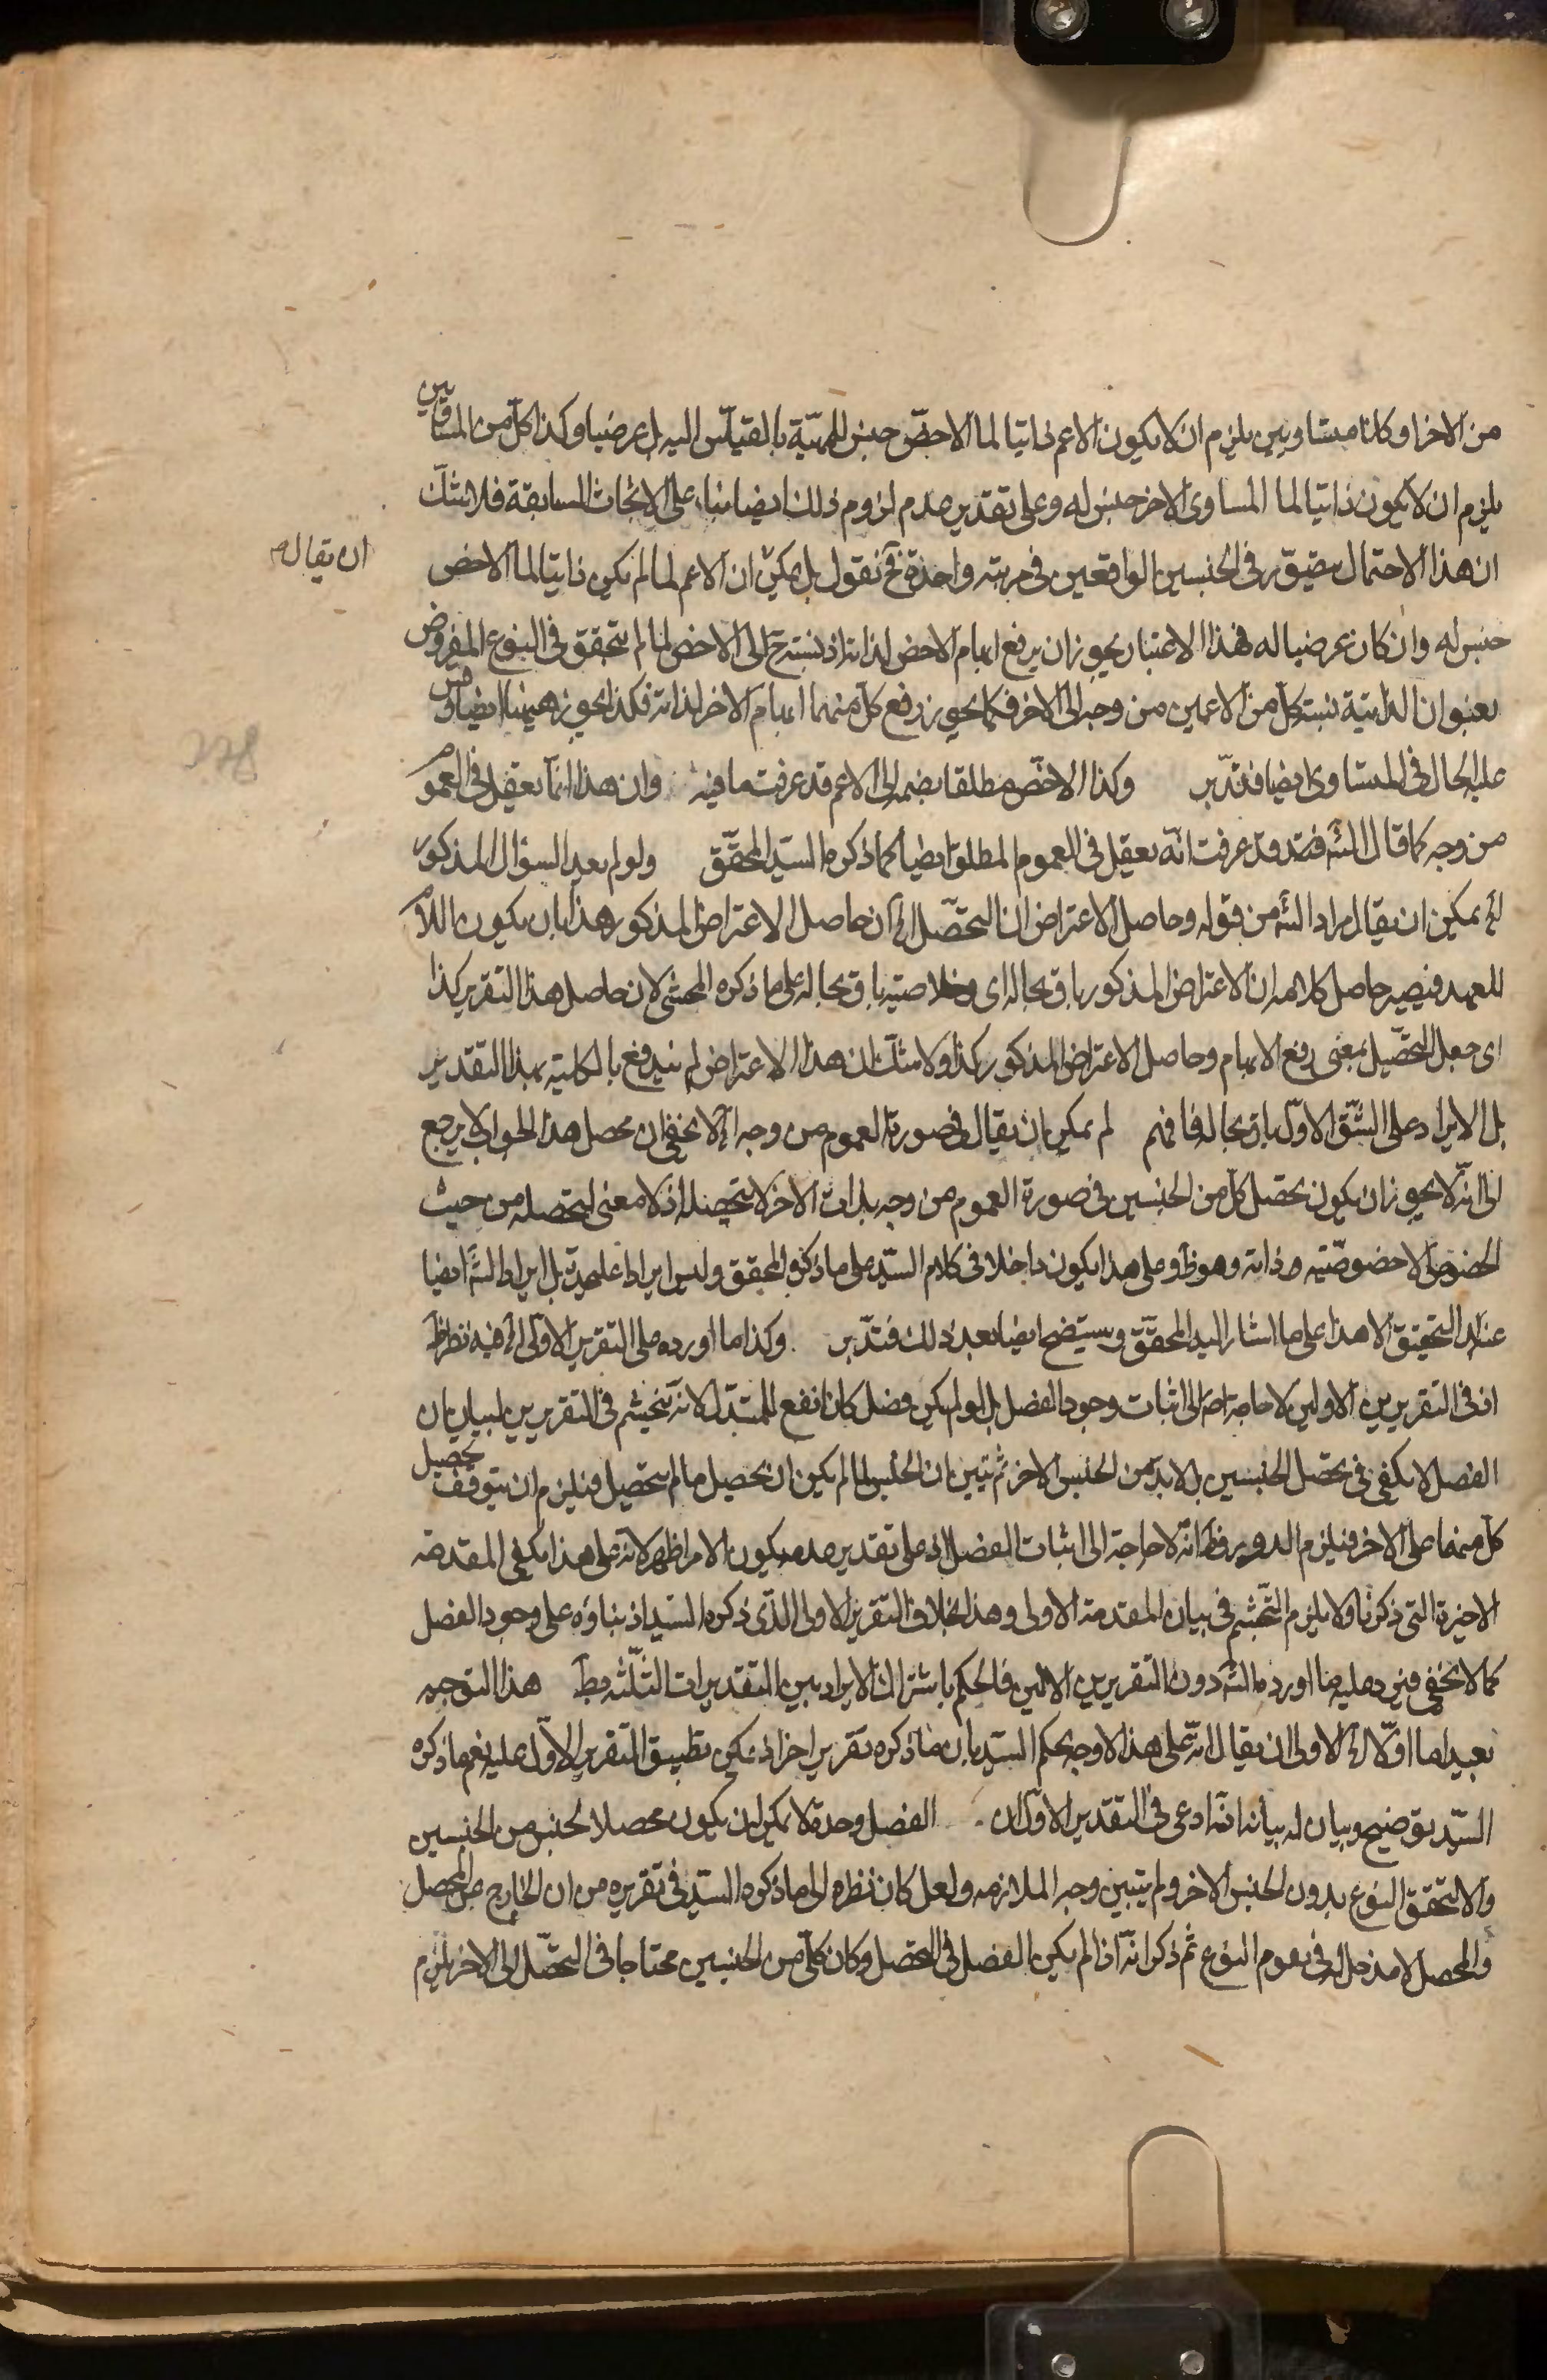 من الاخر او كانا متساويين يلزم ان لا يكون الاعم ذاتيا لما الاخصّ جنس للمهيّة بالقياس اليه بل عرضيا وكذا كلّ من المتساويين
يلزم ان لا يكون ذاتيا لما المساوى الاخر جنس له وعلى تقدير عدم لزوم ذلك ايضا بناء على الابحاث السابقة فلا شكّ
ان هذا الاحتمال يتصوّر فى الجنسين الواقعين فى مرتبة واحدة فح نقول بل يمكن ان الاعم لما لم يكن ذاتيا لما الاخص
ان يقال
جنس له وان كان عرضيا له فهذا الاعتبار يجوز ان يرفع ابهام الاخص لذاته اذ نسبته ح الى الاخص لما لم يتحقق فى النوع المفروض
بعنوان الذاتية نسبة كلّ من الاعمين من وجه الى الاخر فكما يجوز رفع كلّ منهما ابهام الاخر لذاته فكذا يجوز هيهنا ايضا وقس
عليه الحال فى المتساوى ايضا فتدبّر وكذا الاخصّ مطلقا بضمه الى الاعم قد عرفت ما فيه وان هذا انما يعقل فى العموم
من وجه كما قال الشه فيه قد عرفت انّه يعقل فى العموم المطلق ايضا كما ذكره السيّد المحقّق ولو لم بعد السؤال المذكور
الخ يمكن ان يقال مراد الشه من قوله وحاصل الاعتراض ان التحصّل الخ ان حاصل الاعتراض المذكور هذا بان يكون اللام
للعهد فيصير حاصل كلامه ان الاعتراض المذكور باق بحاله اى وخلاصته باق بحاله على ما ذكره المحشى لان حاصل هذا التقرير كذا
اى جعل التحصّيل بمعنى رفع الابهام وحاصل الاعتراض المذكور كذا ولا شكّ ان هذا الاعتراض لم يندفع بالكلية بهذا التقدير
بل الايراد على الشّق الاوّل باق بحاله فافهم لم يمكن ان يقال فى صورة العموم من وجه الخ لا يخفى ان محصل هذا الجواب لا يرجع
الى انّه لا يجوز ان يكون تحصّل كلّ من الجنسين فى صورة العموم من وجه بذات الاخر لا بتحصّله اذ لا معنى لتحصله من حيث
الخصوص الا خصوصّيته وذاته وهو ظ وعلى هذا يكون داخلا فى كلام السيّد على ما ذكره المحقق وليس ايرادا عليحدة بل ايراد الشه ايضا
عند التحقيق الا هذا على ما اشار اليه المحقّق وسيتضح ايضا بعد ذلك فتدّبر وكذا ما اورده على التقرير الاوّل الخ فيه نظر ظ
اذ فى التقريرين الاولين لا حاجة اصلا الى اثبات وجود الفصل بل لو لم يكن فصل كان انفع للمستدل لانه يتجشم فى التقريرين لبيان ان
الفصل لا يكفى فى تحصّل الجنسين بل لا بدّ من الجنس الاخر ثم يتبين ان الجنس لما لم يكن ان يحصيل ما لم يتحصيل فيلزم ان يتوقف تحصيل
كلّ منهما على الاخر فيلزم الدور وظ انّه لا حاجة الى اثبات الفصل اذ على تقدير عدمه يكون الامر اظهر لانه على هذا يكفى المقدمة
الاخيرة التى ذكرنا ولا يلزم التّجشّم فى بيان المقدمة الاولى وهذا بخلاف التقرير الاولى الذّى ذكره السيّد اذ بناؤه على وجود الفصل
كما لا يخفى فيرد عليه ما اورده الشه دون التقريرين الاولين فالحكم باشتراك الايراد بين التقديرات الثلثة فظ هذا التوجيه
بعيد اما اوّلا الخ الاولى ان يقال انّه على هذا لا وجه لحكم السيّد بان ما ذكره تقرير اخر اذ يمكن تطبيق التقرير الاوّل عليه نعم ما ذكره
السيّد توضيح وبيان له بيانه انّه ادعى فى التقدير الاوّل ان الفصل وحده لا يمكن ان يكون محصلا لجنس من الجنسين
والا لتحقق النوع بدون الجنس الاخر ولم يتبين وجه الملازمه ولعل كان نظره الى ما ذكره السيّد فى تقريره من ان الخارج عن المحصل
والمحصل لا مدخل له فى تقوم النوع ثم ذكر انّه اذا لم يكن الفصل فى التحصل وكان كلّ من الجنسين محتاجا فى التحصّل الى الاخر يلزم